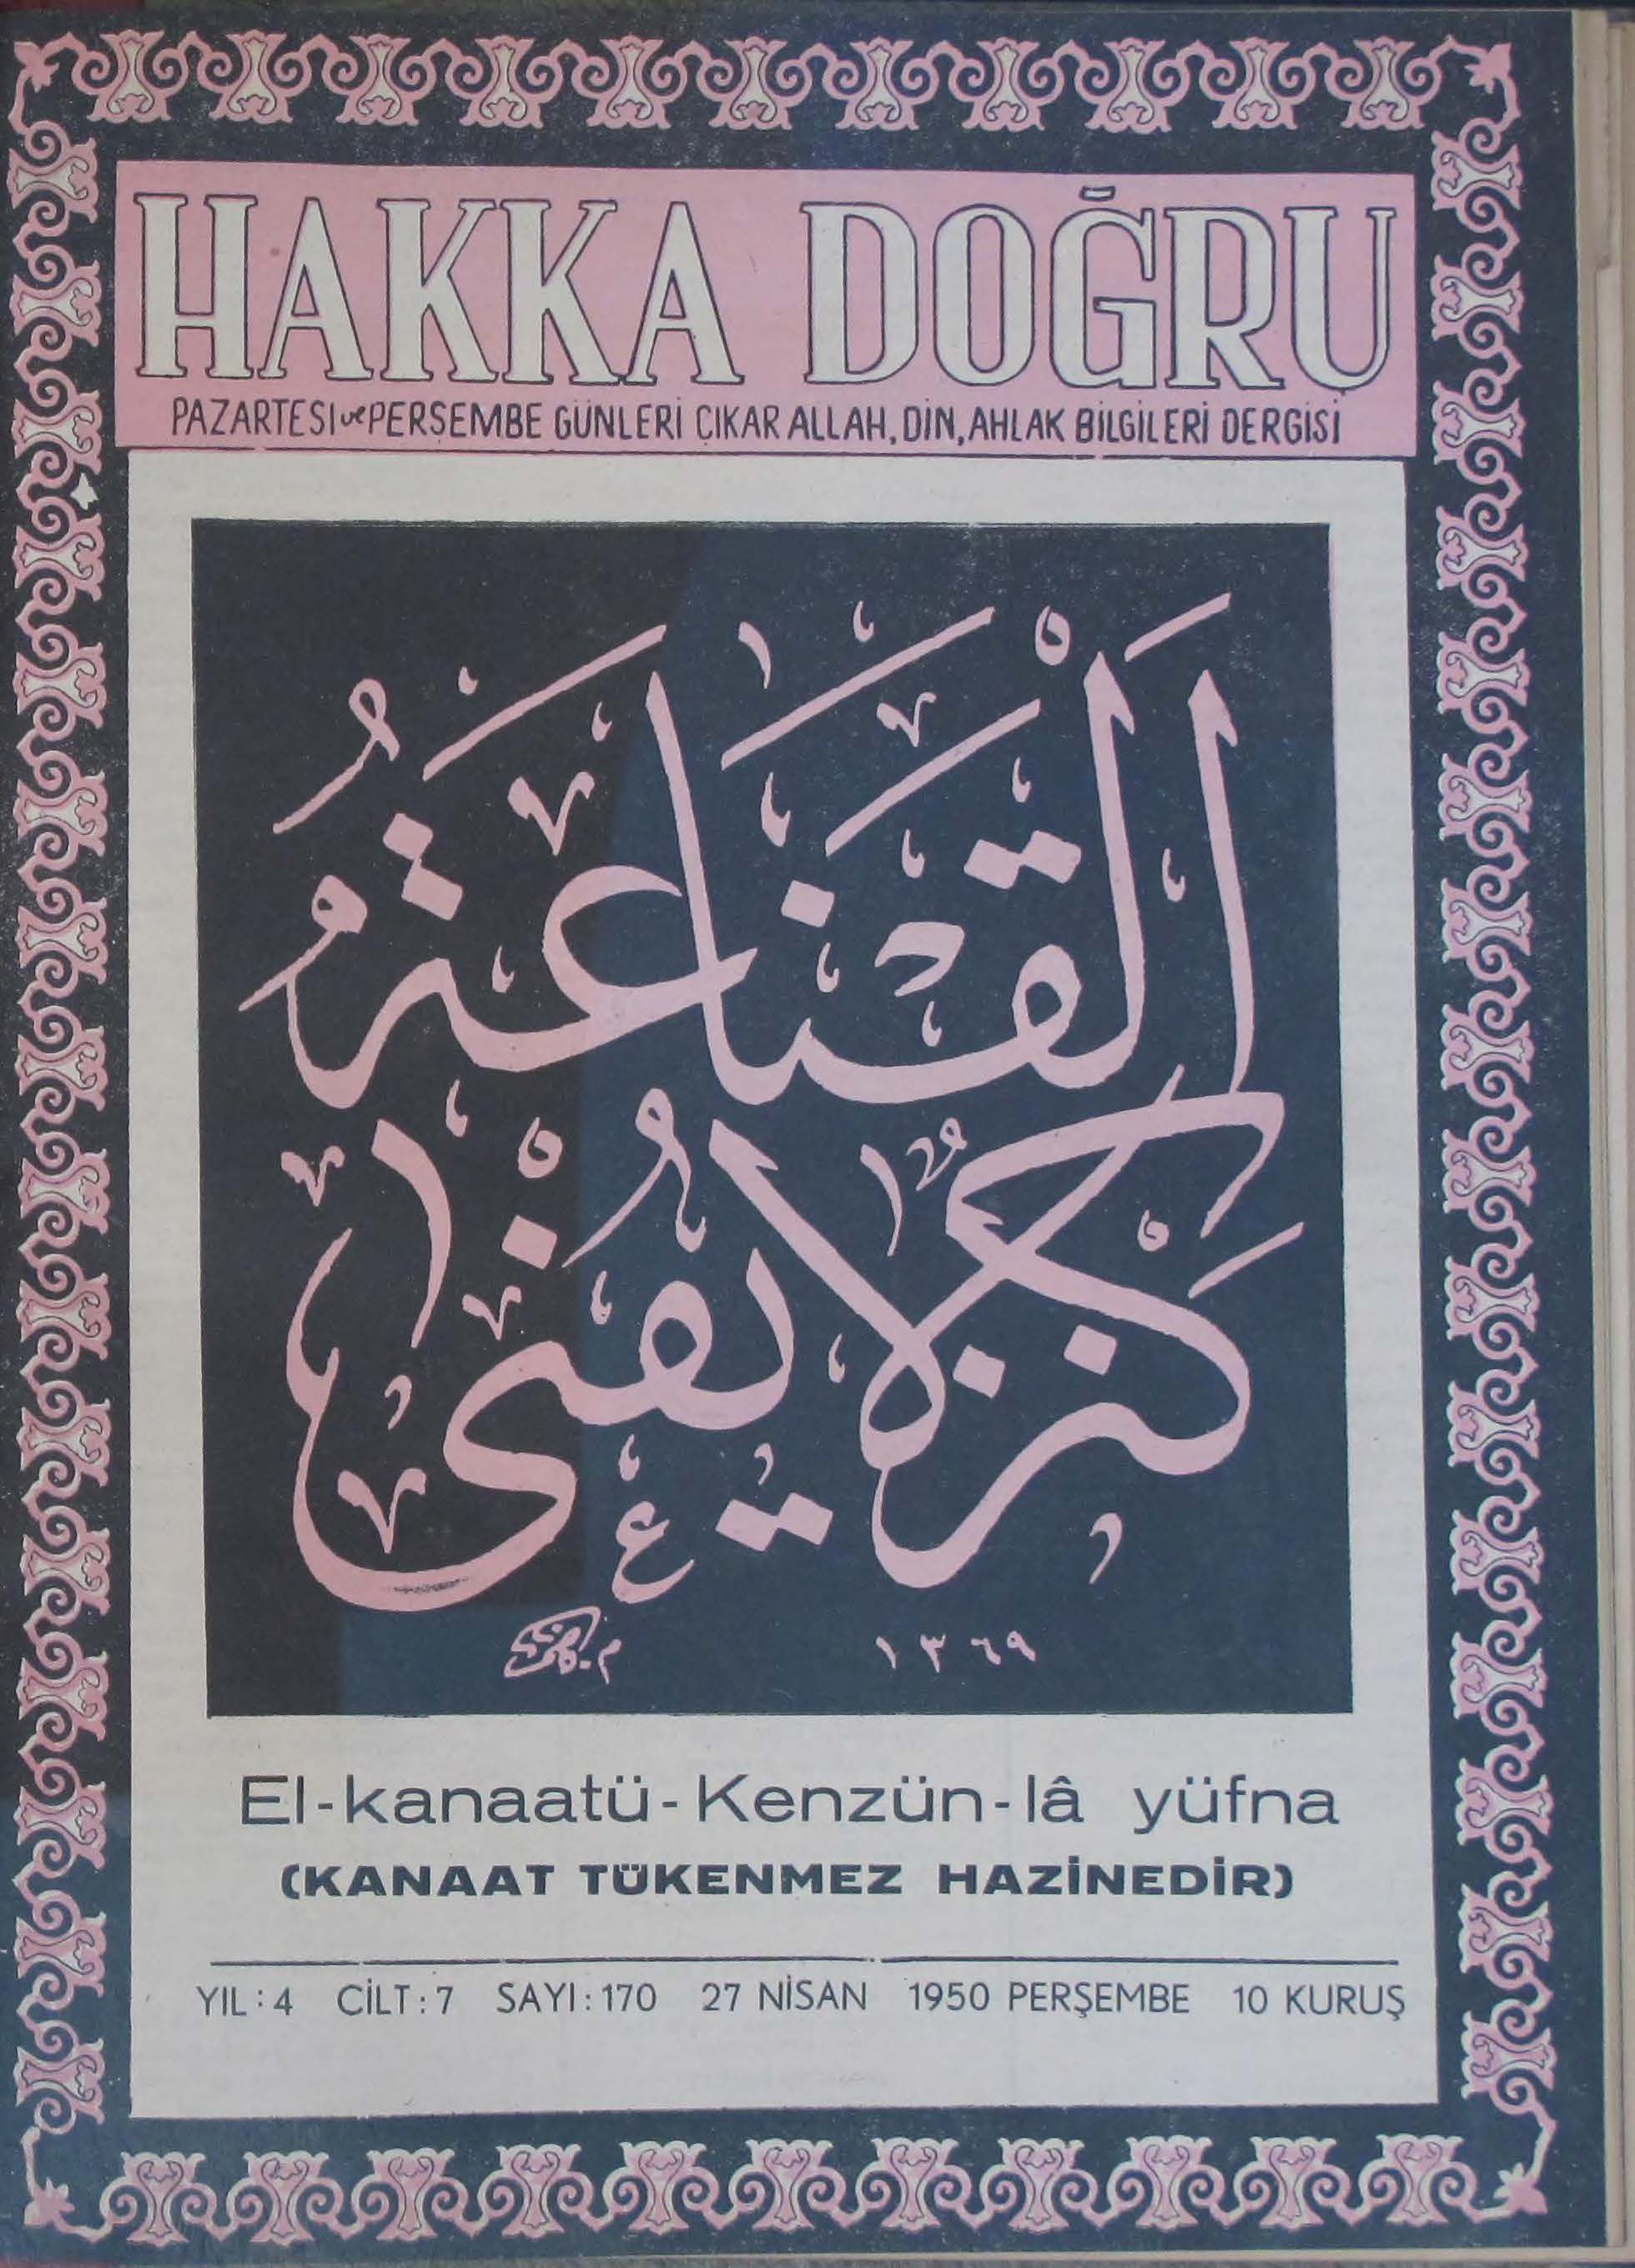 HAKKA DOĞRU
PAZARTESI ve PERŞEMBE GÜNLERİ ÇIKAR ALLAH, DİN, AHLAK BİLGİLERİ DERGİSİ
اَلْقَنَاعَةُ
كَنْزٌ لَا يُفْنٰى
١٣٦٩
El-kanaatü-Kenzün-lâ yüfna
(KANAAT TÜKENMEZ HAZİNEDİR)
YIL:4 CİLT:7 SAYI:170 27 NİSAN 1950 PERŞEMBE 10 KURUŞ